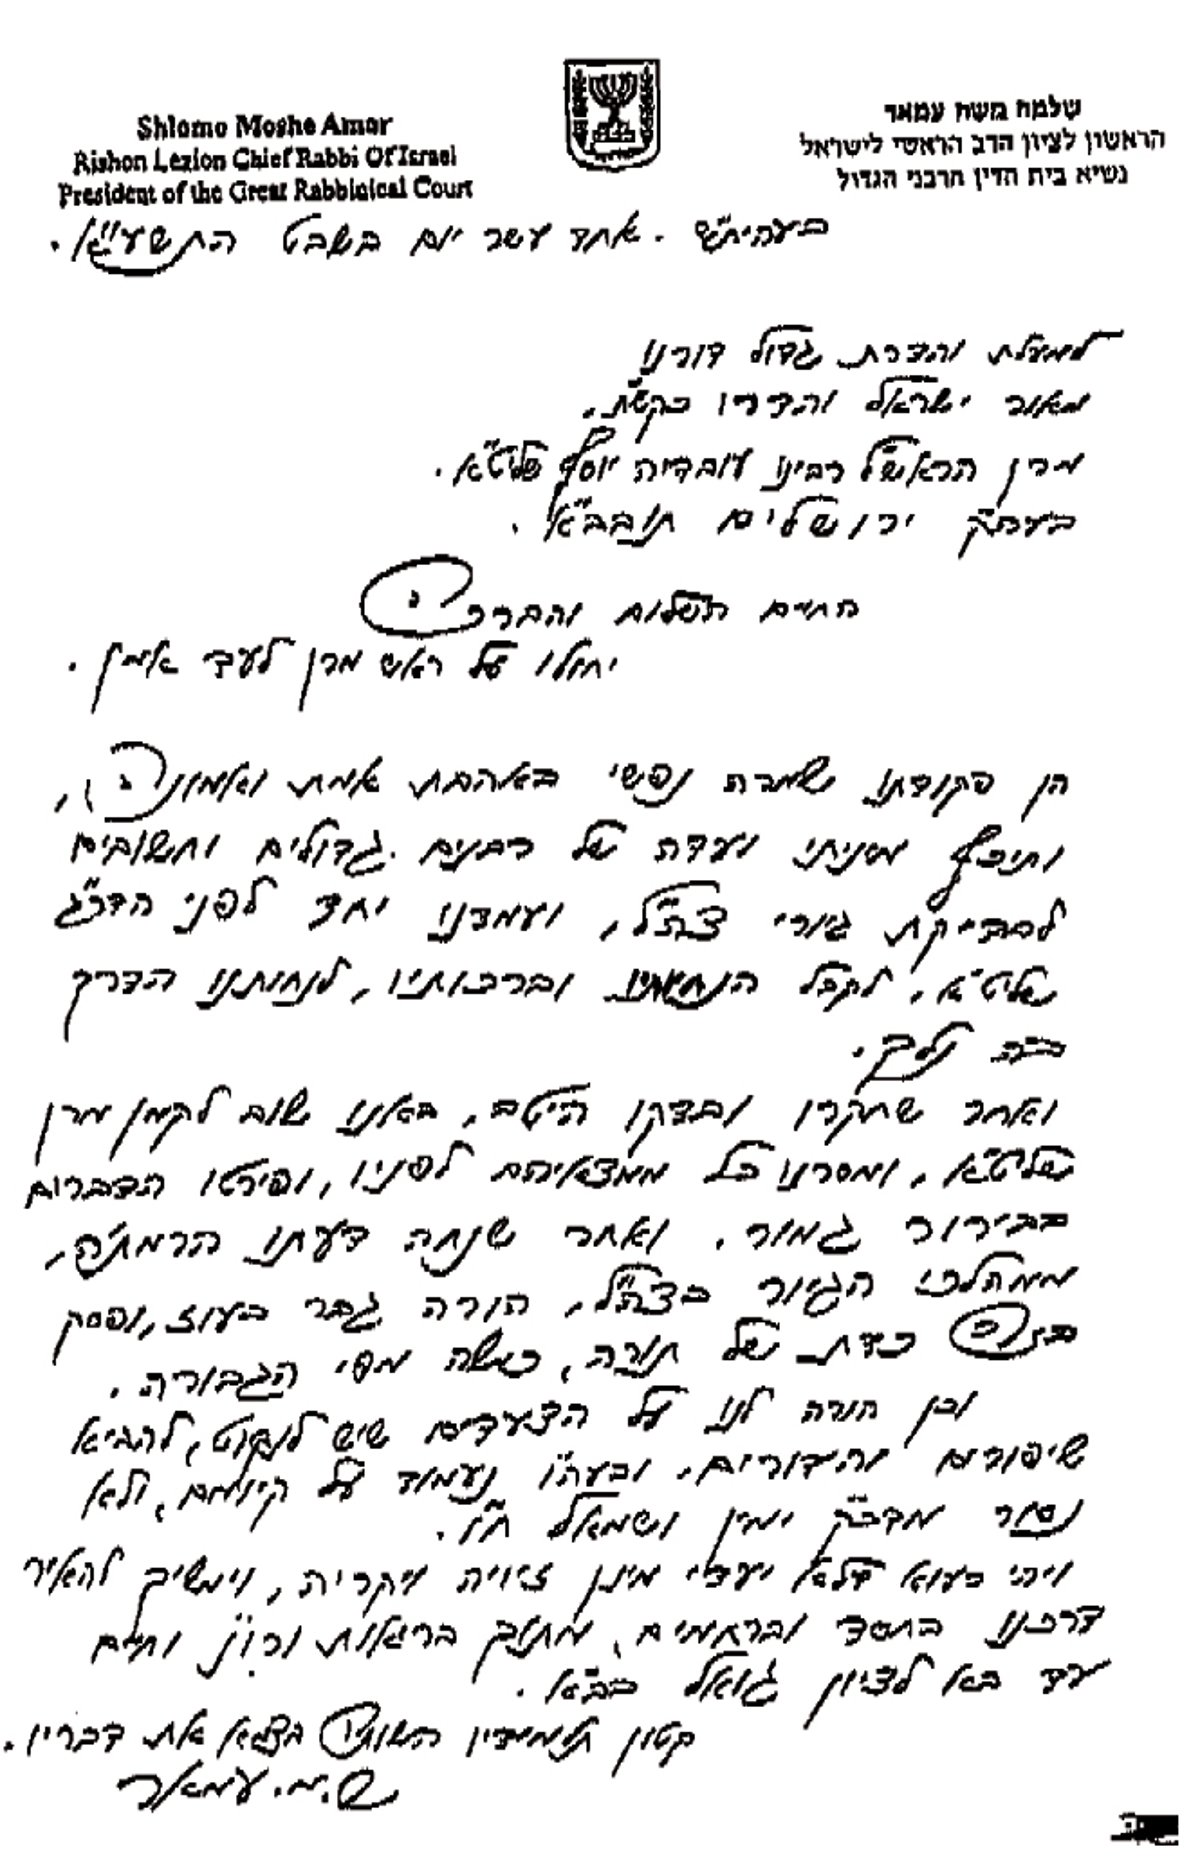 Shlomo Moshe Amar
Rishon Lezion Chief Rabbi Of Israel
President of the Great Rabbinical Court
שלמה משה עמאר
הראשון לציון הרב הראשי לישראל
נשיא בית הדין הרבני הגדול
בעהית"ש . אחד עשר יום בשבט התשע"א.
למעלת והדרת גדול דורנו
מאור ישראל והדרו בקש"ת,
מרן הראש"ל רבינו עובדיה יוסף שליט"א.
בעה"ק ירושלים תובב"א.
החיים השלום והברכה
יחולו על ראש מרן לעד אמן.
הן פקודתו שמרה נפשי באהבת אמת ואמונה,
ותיכף מניתי ועדה של רבנים גדולים וחשובים
לבדיקת גיורי צה"ל, ועמדנו יחד לפני הדר"ג
שליט"א, לקבל הנחיותיו וברכותיו, לנחותנו הדרך
בה נלך.
ואחר שחקרו ובדקו היטב, באנו שוב לקמן מרן
שליט"א, ומסרנו כל ממצאיהם לפניו, ופירטו הדברים
בבירור גמור, ואחר שנחה דעתו הרמתה,
ממהלכי הגיור בצה"ל, הורה גבר בעוז, ופסק
בזה כדת של תורה, כמשה מפי הגבורה.
וכן הורה לנו על הצעדים שיש לנקוט, להביא
שיפורים והידורים, ובעה"ו נעמוד על קיומם, ולא
נסור מדב"ק ימין ושמאל ח"ו.
ויהי רעוא דלא יעדי מינן זיויה ויקריה, וימשיך להאיר
דרכנו בחסד וברחמים, מתוך בריאות ורו"ן וחיים
עד בא לציון גואל בב"א.
קטון תלמידיו השותה בצמא את דבריו.
ש.מ. עמאר